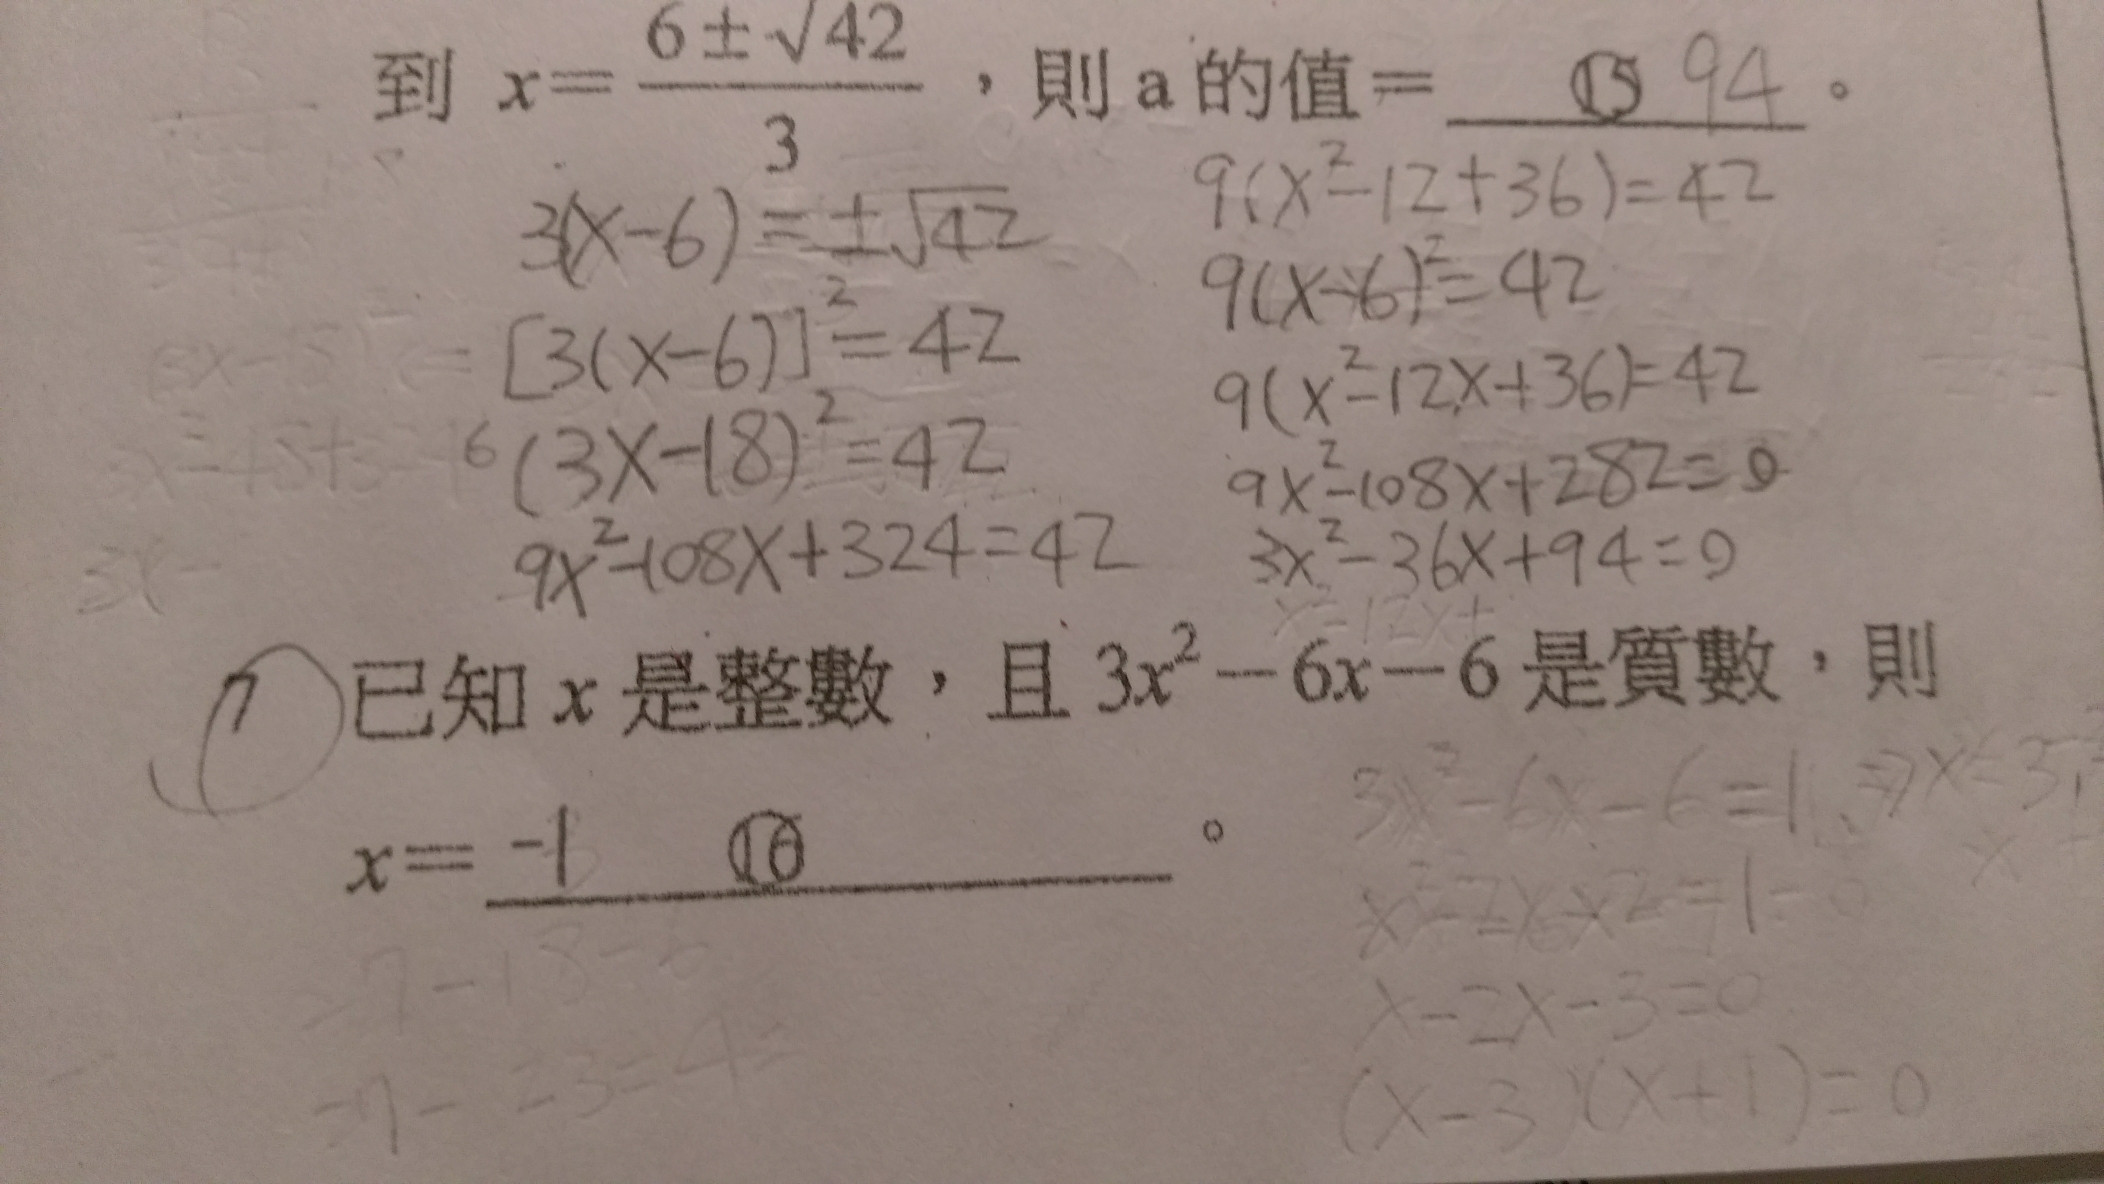 到 x=(6±√42)/3,則 a 的值= ⑮ 94 。
3(x-6)=±√42
[3(x-6)]²=42
(3x-18)²=42
9x²-108x+324=42
9(x²-12+36)=42
9(x-6)²=42
9(x²-12x+36)=42
9x²-108x+282=0
3x²-36x+94=0
已知 x 是整數,且 3x²-6x-6 是質數,則
x= -1 ⑯ 。
3x²-6x-6=1
x-2x-3=0
(x-3)(x+1)=0